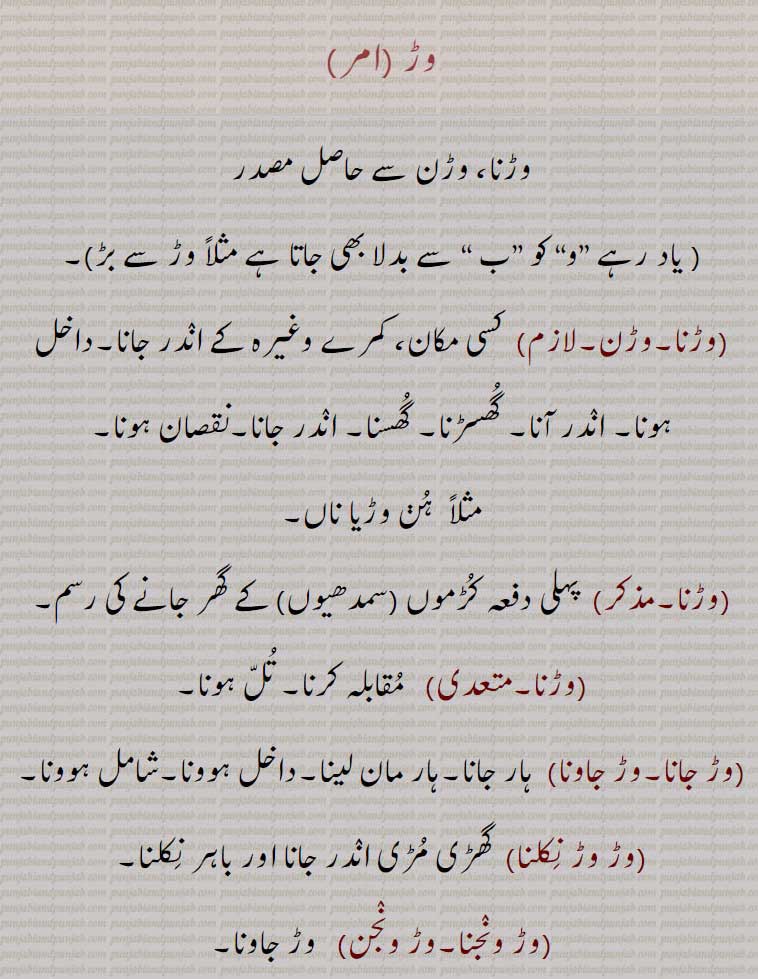 وڑ (امر)
وڑنا، وڑن سے حاصل مصدر
( یاد رہے ”و“ کو ”ب “ سے بدلا بھی جاتا ہے مثلاً وڑ سے بڑ)۔
(وڑنا۔وڑن۔لازم) کسی مکان، کمرے وغیرہ کے انْدر جانا۔داخل
ہونا۔ انْدر آنا۔ گُھسڑنا۔ گُھسنا۔ انْدر جانا۔نقصان ہونا۔
مثلاً ہُݨ وڑیا ناں۔
(وڑنا۔مذکر) پہلی دفعہ کُڑموں (سمدھیوں) کے گھر جانے کی رسم۔
(وڑنا۔متعدی) مُقابلہ کرنا۔ تُلّ ہونا۔
(وڑ جانا۔وڑ جاونا) ہار جانا۔ہار مان لینا۔داخل ہوونا۔شامل ہوونا۔
(وڑ وڑ نِکلنا) گھڑی مُڑی انْدر جانا اور باہر نِکلنا۔
(وڑ ونْجنا۔وڑ ونْجن) وڑ جاونا۔